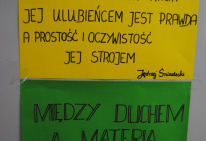 JEJ ULUBIEŃCEM JEST PRAWDA
A PROSTOŚĆ I OCZYWISTOŚĆ
JEJ STROJEM
Jędrzej Śniadecki
MIĘDZY DUCHEM
A MATERIĄ